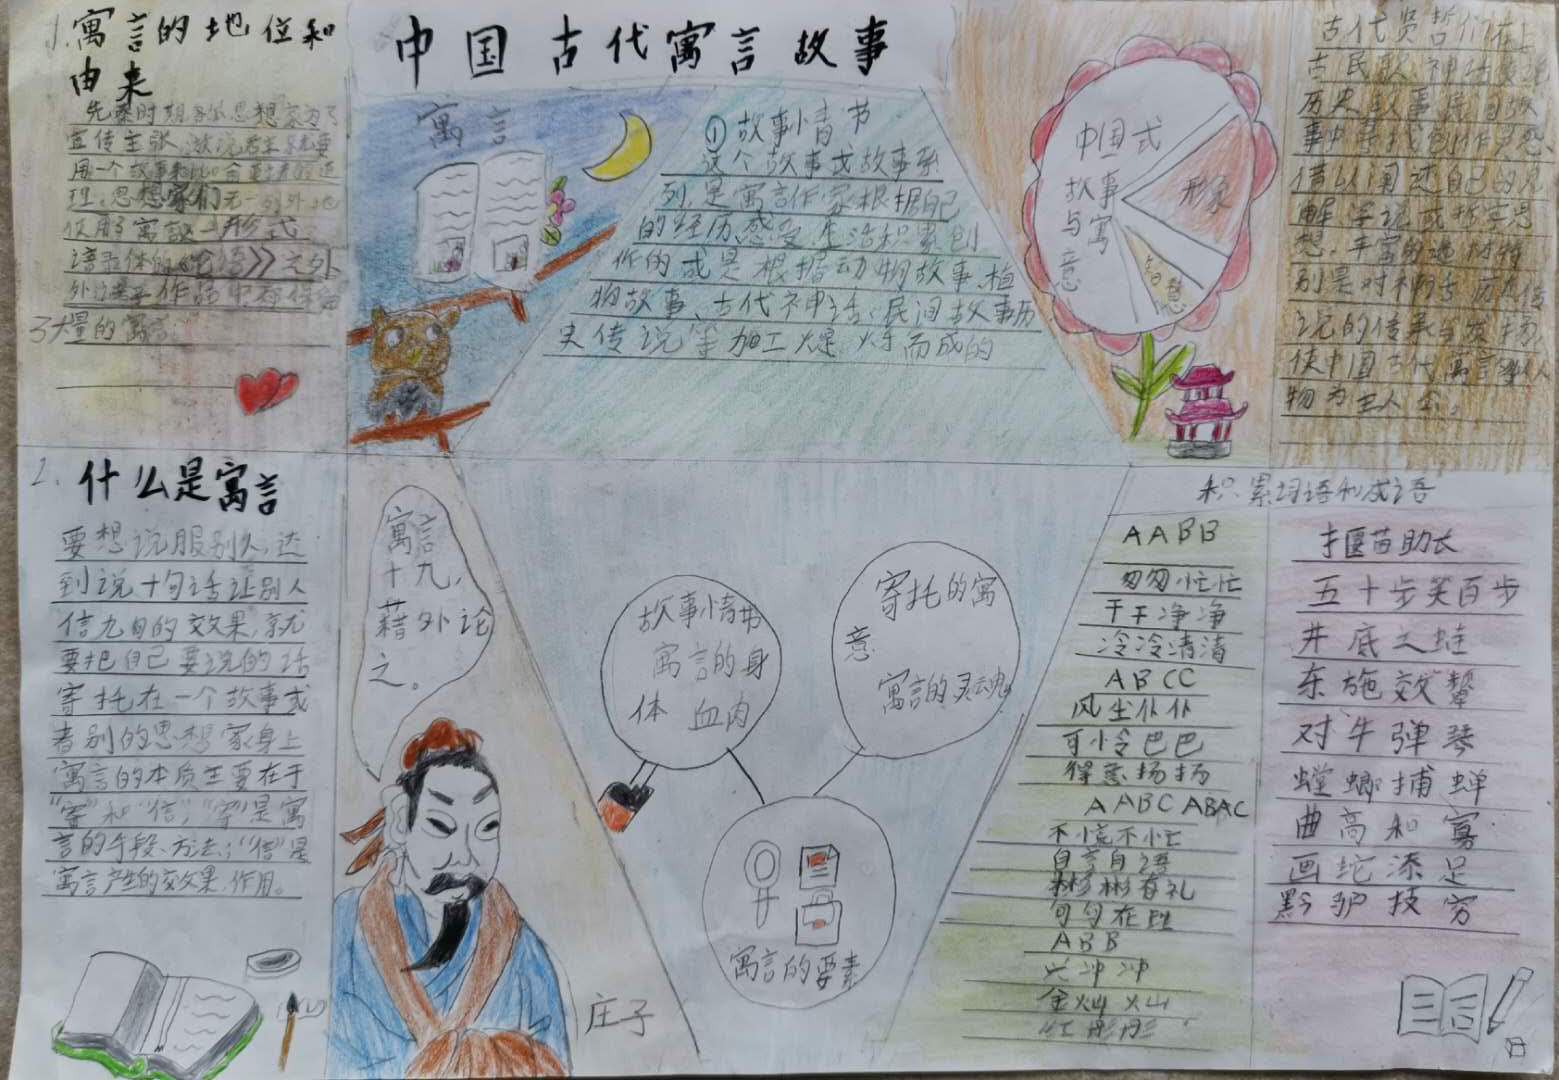 中国古代寓言故事
1.寓言的地位和
由来
先秦时期各派思想家为了
宣传主张
用一个故事
理。思想家们无一例外地
使用寓言
形式
语录体的
之外
作品中存
了大量的寓言
寓言
①故事情节
这个故事或故事系
列,是寓言作家根据自己
的经历感受、生活积累创
作的或是根据动物故事、植
物故事、古代神话、民间故事历
史传说等加工
而成的
中国式
故事
与寓
意
形象
智慧
古代贤哲们在上
古民歌神话
历史故事
事中寻找创作灵感
借以阐述自己的见
解、学说或
思
想。丰富的
别是对神话、历史传
说的传承与发扬
使中国古代寓言
人
物为主人公。
2.什么是寓言
要想说服别人,达
到说十句话让别人
信九句的效果,就
要把自己要说的话
寄托在一个故事或
者别的思想家身上
寓言的本质主要在于
“寄”和“信”,“寄”是寓
言的手段、方法;“信”是
寓言产生的效果、作用。
寓言
十九,
藉外论
之。
庄子
故事情节
寓言的身
体 血肉
寄托的寓
意
寓言的灵魂
寓言的要素
积累词语和成语
AABB
匆匆忙忙
干干净净
冷冷清清
ABCC
风尘仆仆
可怜巴巴
得意扬扬
AABC ABAC
不慌不忙
自言自语
彬彬有礼
句句在理
ABB
兴冲冲
金灿灿
红彤彤
揠苗助长
五十步笑百步
井底之蛙
东施效颦
对牛弹琴
螳螂捕蝉
曲高和寡
画蛇添足
黔驴技穷